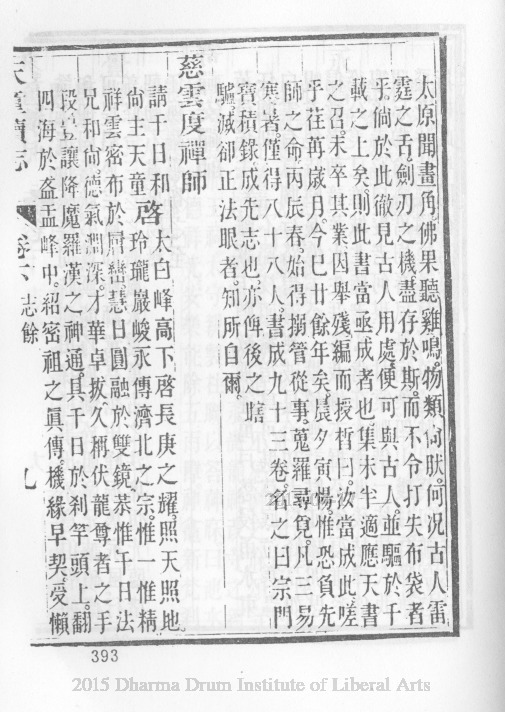 太原聞畫角佛果聽雞鳴物類尚肰何况古人雷
霆之舌劍刃之機盡存於斯而不令打失布袋者
乎倘於此徹見古人用處便可與古人並驅於千
載之上矣則此書當亟成者也集未半適應天書
之召未卒其業因舉殘編而授哲曰汝當成此嗟
乎荏苒歲月今巳廿餘年矣晨夕寅惕惟恐負先
師之命丙辰春始得搦管從事蒐羅尋覓凡三易
寒暑僅得八十八人書成九十三卷名之曰宗門
寶積錄成先志也亦俾後之瞎
驢滅卻正法眼者知所自爾
慈雲度禪師
請千日和尚主天童啓
太白峰高下啓長庚之耀照天照地
玲瓏巖峻永傳濟北之宗惟一惟精
祥雲密布於層巒慧日圓融於雙鏡恭惟千日法
兄和尚德氣潤深才華卓拔久稱伏龍尊者之手
段豈讓降魔羅漢之神通具千日於剎竿頭上翻
四海於盋盂峰中紹密祖之眞傳機緣早契受懶
天童續志
卷下
志餘
九
393
2015 Dharma Drum Institute of Liberal Arts